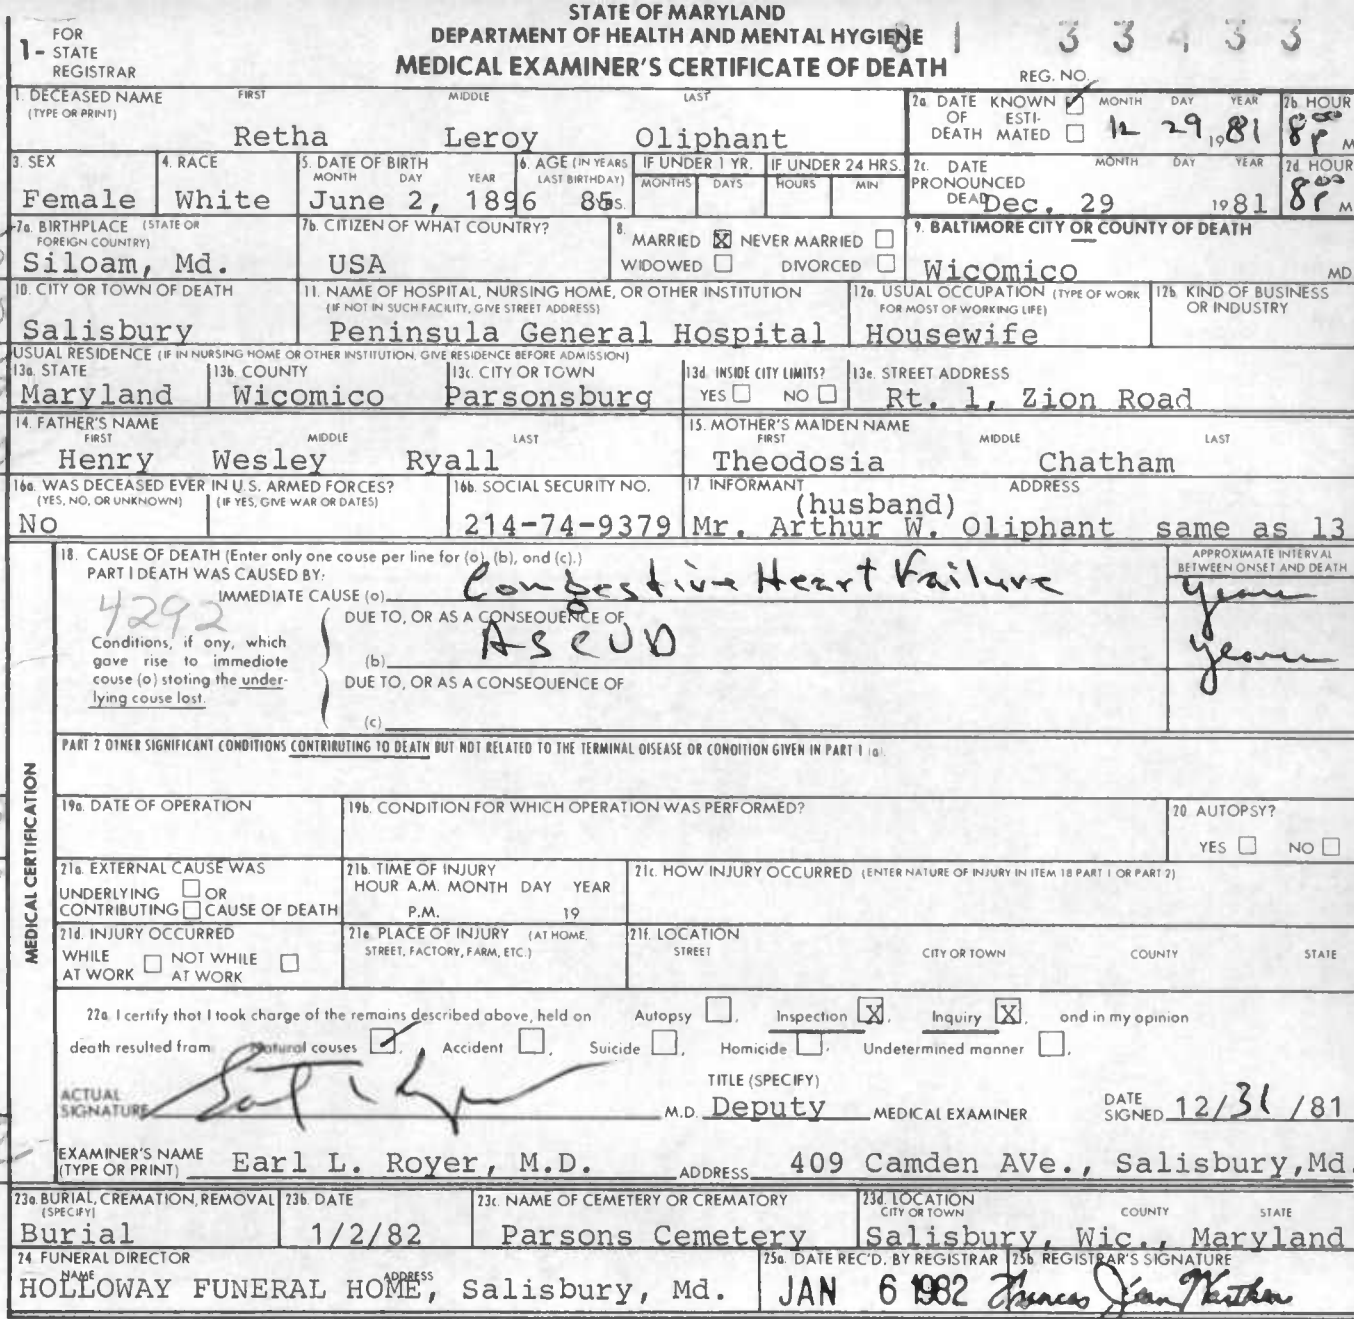 STATE OF MARYLAND
DEPARTMENT OF HEALTH AND MENTAL HYGIENE
MEDICAL EXAMINER'S CERTIFICATE OF DEATH
1- FOR STATE REGISTRAR
REG. NO. 81 33433
1. DECEASED NAME (TYPE OR PRINT) FIRST MIDDLE LAST
Retha Leroy Oliphant
2a. DATE OF DEATH KNOWN ESTIMATED MONTH DAY YEAR
12 29 1981
2b. HOUR
8:00 P M
3. SEX
Female
4. RACE
White
5. DATE OF BIRTH MONTH DAY YEAR
June 2, 1896
6. AGE (IN YEARS LAST BIRTHDAY)
85 YRS.
IF UNDER 1 YR. MONTHS DAYS
IF UNDER 24 HRS. HOURS MIN
2c. DATE PRONOUNCED DEAD MONTH DAY YEAR
Dec. 29 1981
2d HOUR
8:00 P M
7a. BIRTHPLACE (STATE OR FOREIGN COUNTRY)
Siloam, Md.
7b. CITIZEN OF WHAT COUNTRY?
USA
8. MARRIED X NEVER MARRIED
WIDOWED DIVORCED
9. BALTIMORE CITY OR COUNTY OF DEATH
Wicomico MD
10. CITY OR TOWN OF DEATH
Salisbury
11. NAME OF HOSPITAL, NURSING HOME, OR OTHER INSTITUTION
(IF NOT IN SUCH FACILITY, GIVE STREET ADDRESS)
Peninsula General Hospital
12a. USUAL OCCUPATION (TYPE OF WORK FOR MOST OF WORKING LIFE)
Housewife
12b. KIND OF BUSINESS OR INDUSTRY
USUAL RESIDENCE (IF IN NURSING HOME OR OTHER INSTITUTION, GIVE RESIDENCE BEFORE ADMISSION)
13a. STATE
Maryland
13b. COUNTY
Wicomico
13c. CITY OR TOWN
Parsonsburg
13d. INSIDE CITY LIMITS?
YES NO
13e. STREET ADDRESS
Rt. 1, Zion Road
14. FATHER'S NAME FIRST MIDDLE LAST
Henry Wesley Ryall
15. MOTHER'S MAIDEN NAME FIRST MIDDLE LAST
Theodosia Chatham
16a. WAS DECEASED EVER IN U.S. ARMED FORCES?
(YES, NO, OR UNKNOWN) (IF YES, GIVE WAR OR DATES)
No
16b. SOCIAL SECURITY NO.
214-74-9379
17. INFORMANT ADDRESS
(husband)
Mr. Arthur W. Oliphant same as 13
MEDICAL CERTIFICATION
18. CAUSE OF DEATH (Enter only one cause per line for (a), (b), and (c).)
PART I DEATH WAS CAUSED BY:
IMMEDIATE CAUSE (a) Congestive Heart Failure
APPROXIMATE INTERVAL BETWEEN ONSET AND DEATH
years
4292
DUE TO, OR AS A CONSEQUENCE OF
(b) ASCVD
years
Conditions, if any, which
gave rise to immediate
cause (a) stating the under-
lying cause last.
DUE TO, OR AS A CONSEQUENCE OF
(c)
PART 2 OTHER SIGNIFICANT CONDITIONS CONTRIBUTING TO DEATH BUT NOT RELATED TO THE TERMINAL DISEASE OR CONDITION GIVEN IN PART 1 (a)
19a. DATE OF OPERATION
19b. CONDITION FOR WHICH OPERATION WAS PERFORMED?
20 AUTOPSY?
YES NO
21a. EXTERNAL CAUSE WAS
UNDERLYING OR
CONTRIBUTING CAUSE OF DEATH
21b. TIME OF INJURY
HOUR A.M. MONTH DAY YEAR
P.M. 19
21c. HOW INJURY OCCURRED (ENTER NATURE OF INJURY IN ITEM 18 PART 1 OR PART 2)
21d. INJURY OCCURRED
WHILE AT WORK NOT WHILE AT WORK
21e. PLACE OF INJURY (AT HOME, STREET, FACTORY, FARM, ETC.)
21f. LOCATION
STREET CITY OR TOWN COUNTY STATE
22a I certify that I took charge of the remains described above, held on Autopsy , Inspection X, Inquiry X, and in my opinion
death resulted from Natural causes , Accident , Suicide , Homicide , Undetermined manner .
ACTUAL SIGNATURE
M.D.
TITLE (SPECIFY)
Deputy MEDICAL EXAMINER
DATE SIGNED 12/31/81
EXAMINER'S NAME (TYPE OR PRINT) Earl L. Royer, M.D.
ADDRESS 409 Camden AVe., Salisbury, Md.
23a. BURIAL, CREMATION, REMOVAL (SPECIFY)
Burial
23b. DATE
1/2/82
23c. NAME OF CEMETERY OR CREMATORY
Parsons Cemetery
23d. LOCATION CITY OR TOWN COUNTY STATE
Salisbury, Wic., Maryland
24 FUNERAL DIRECTOR
NAME ADDRESS
HOLLOWAY FUNERAL HOME, Salisbury, Md.
25a. DATE REC'D. BY REGISTRAR
JAN 6 1982
25b. REGISTRAR'S SIGNATURE